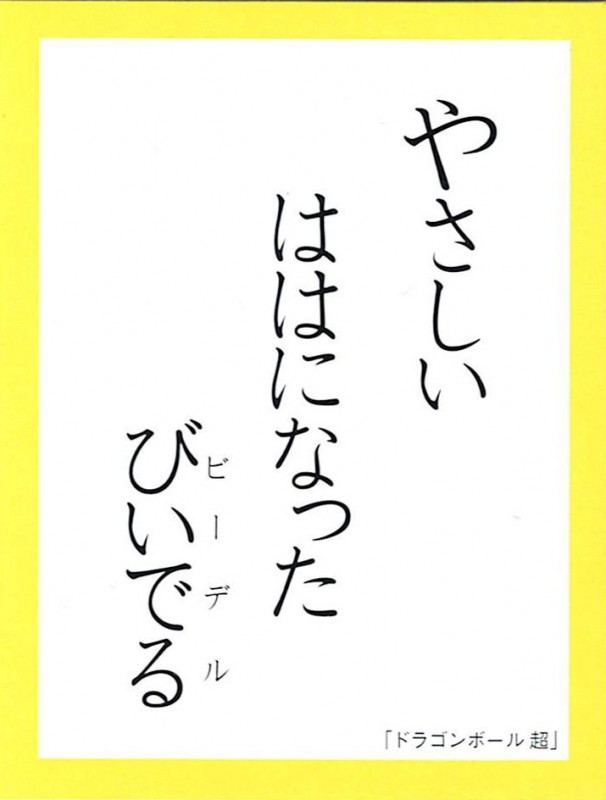 やさしい
ははになった
びいでる
ビーデル
「ドラゴンボール 超」